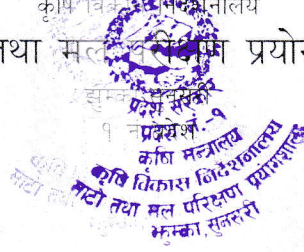 कृषि विकास निर्देशनालय
तथा मल परीक्षण प्रयो
झुम्का, सुनसरी
१ नं प्रदेश
प्रदेश सरकार
प्रदेश नं.-१
कृषि मन्त्रालय
कृषि विकास निर्देशनालय
माटो तथा मल परिक्षण प्रयोगशाला
झुम्का, सुनसरी